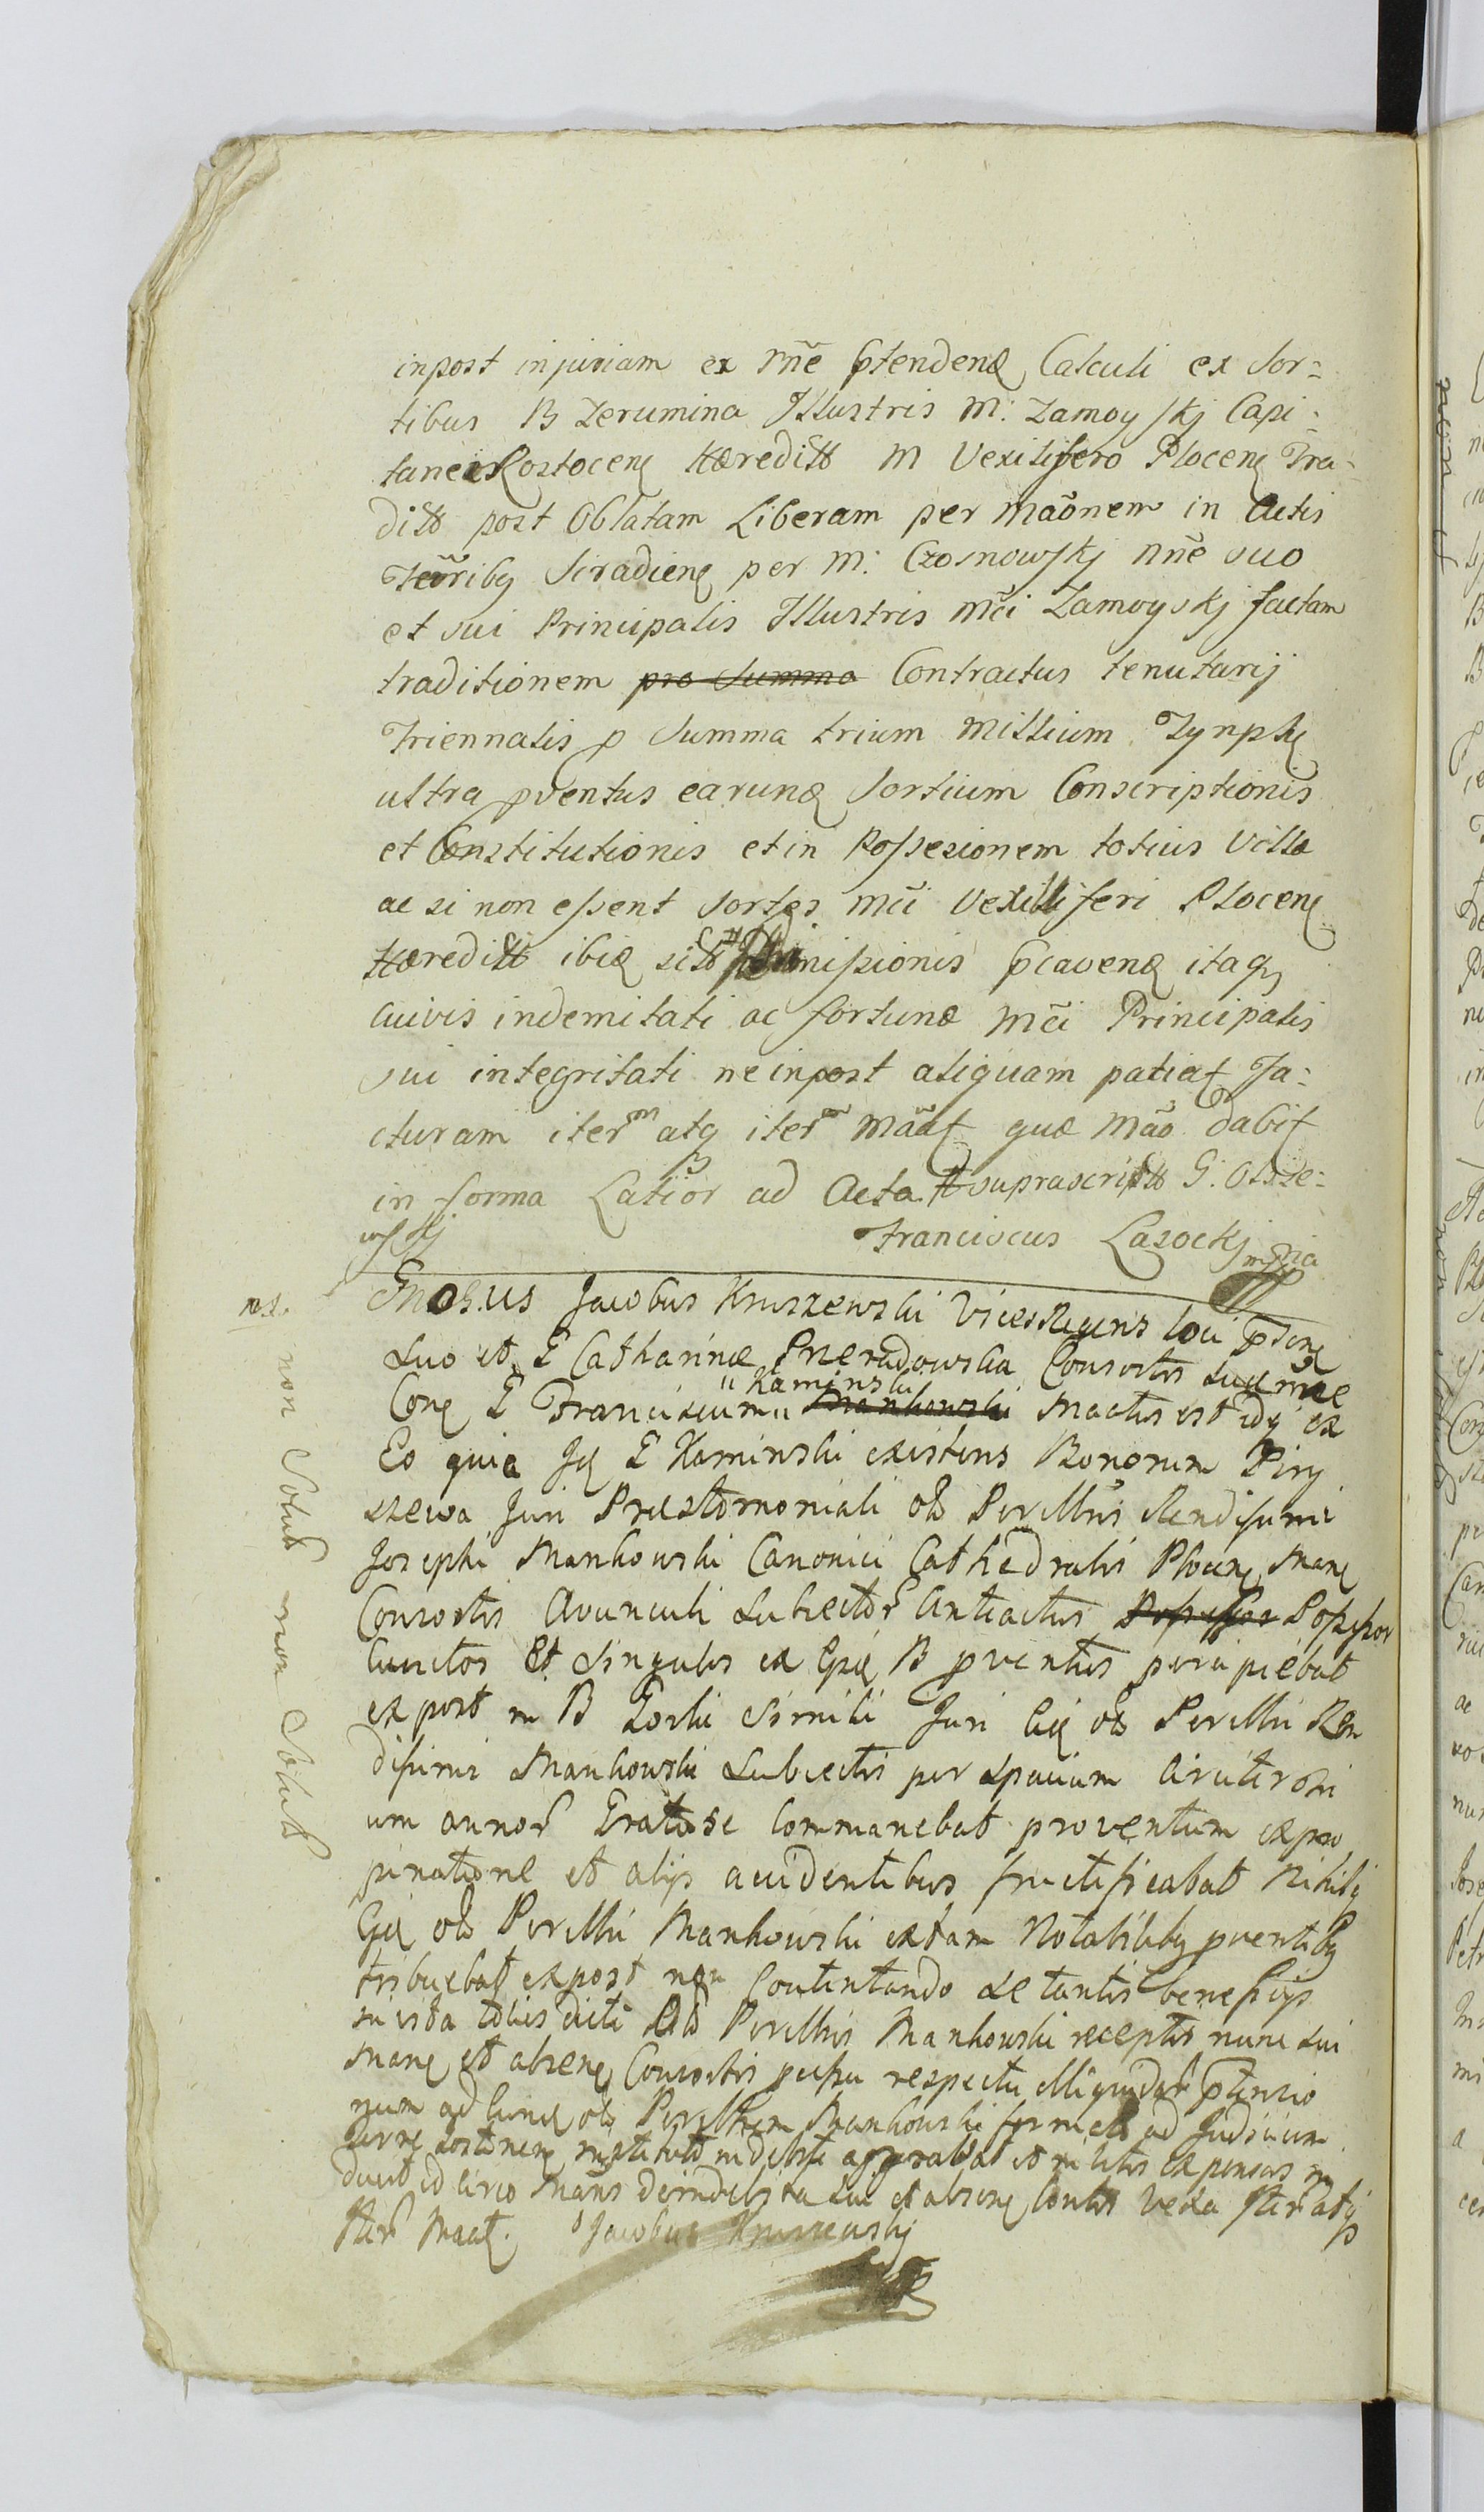 inpost injuriam ex rñe ptendenꝗ Calculi ex Sor=
tibus B Zerumina Illustris M: Zamoyskj Capi:
tanei Rostocenꝗ Hæreditt M Vexilifero Plocenꝗ Tra-
ditt post Oblatam Liberam per mãonem in Actis
Terr̃ibꝗ Siradienꝗ per M: Czosnowskj nñe suo
et sui Principalis Illustris Mci Zamoyskj factam
traditionem pro summa Contractus tenutarij
Triennalis p Summa trium Millium Tynphꝗ
ultra pventus earunꝗ Sortium Conscriptionis
et Constitutionis et in Possesionem totius Villæ
ac si non essent sortes Mci Vexilliferi Plocenꝗ
Hæreditt ibiꝗ sitt misionis pcavenꝗ itaqꝫ
cuivis indemitati ac fortunæ Mci Principalis
sui integritati ne inpost aliquam patiaꝭ Ja:
cturam iterm atꝗ iterm mãaꝭ quæ mão dabiꝭ
in forma Latior ad Acta supra scriptt G. Olsze:
wskj Franciscus Lasockj mppia
Gnosus Jacobus Kruszewski Vices Regens loci pscnꝗ
Suo et G Catharinæ Pneradowska Consortis suæ nñe
Conꝗ G Franciscum "Kaminski" Mankowski Mactus est idꝗ ex
Eo quia Jꝗ G Kaminski existens Bonorum Piry
szewa Juri Præstomoniali olt Perillris Rendissimi
Josephi Mankowski Canonici Cathedralis Plocenꝗ Manꝗ
Consortis Avunculi Subiector Antiactus Possessor Possessor
Cunctos et Singulos ex Eꝗ B pventus percipiebat
ex post in B Gorki Simili Juri Eiꝗ olt Perillri Ren
dissimi Mankowski Subiectis per spacium circiter tri
um annor Gratose Commanebat proventum ex pro
pinatione et alijs accidentibus fructificabat Nihilꝗ
Eiꝗ olt Perillri Mankowski ex tam Notabilibꝗ pventibꝗ
tribuebat ex post non Contentando de tantis beneficijs
olt Perillris Mankowski receptis nunc sui
Manꝗ et absenꝗ Consortis respectu
num ad hunꝗ olt Perillrem Mankowski ad Judicium
et in litis expensas in
duxit id circo Mans sui et absenꝗ iter atꝗ
iter Maaꝭ. Jacobus Kruszewskj
ns.
non Solut non Solut